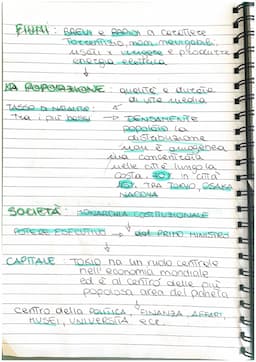 FIUMI: BREVI e RAPIDI a carattere
torrentizio, non navigabili,
usati x irrigare e produrre
energia elettrica
LA POPOLAZIONE: qualità e durata
di vita media
TASSO DI NATALITÀ:
Tra i più bassi → DENSAMENTE
popolato la
distribuzione
non è omogenea,
ma concentrata
nelle città lungo la
costa in città
TRA TOKIO, OSAKA
NAGOYA
SOCIETÀ: MONARCHIA COSTITUZIONALE
POTERE ESECUTIVO → del PRIMO MINISTRO
CAPITALE: TOKIO ha un ruolo centrale
nell'economia mondiale
ed è al centro della più
popolosa area del pianeta
centro della POLITICA, FINANZA, AFFARI,
MUSEI, UNIVERSITÀ ecc.